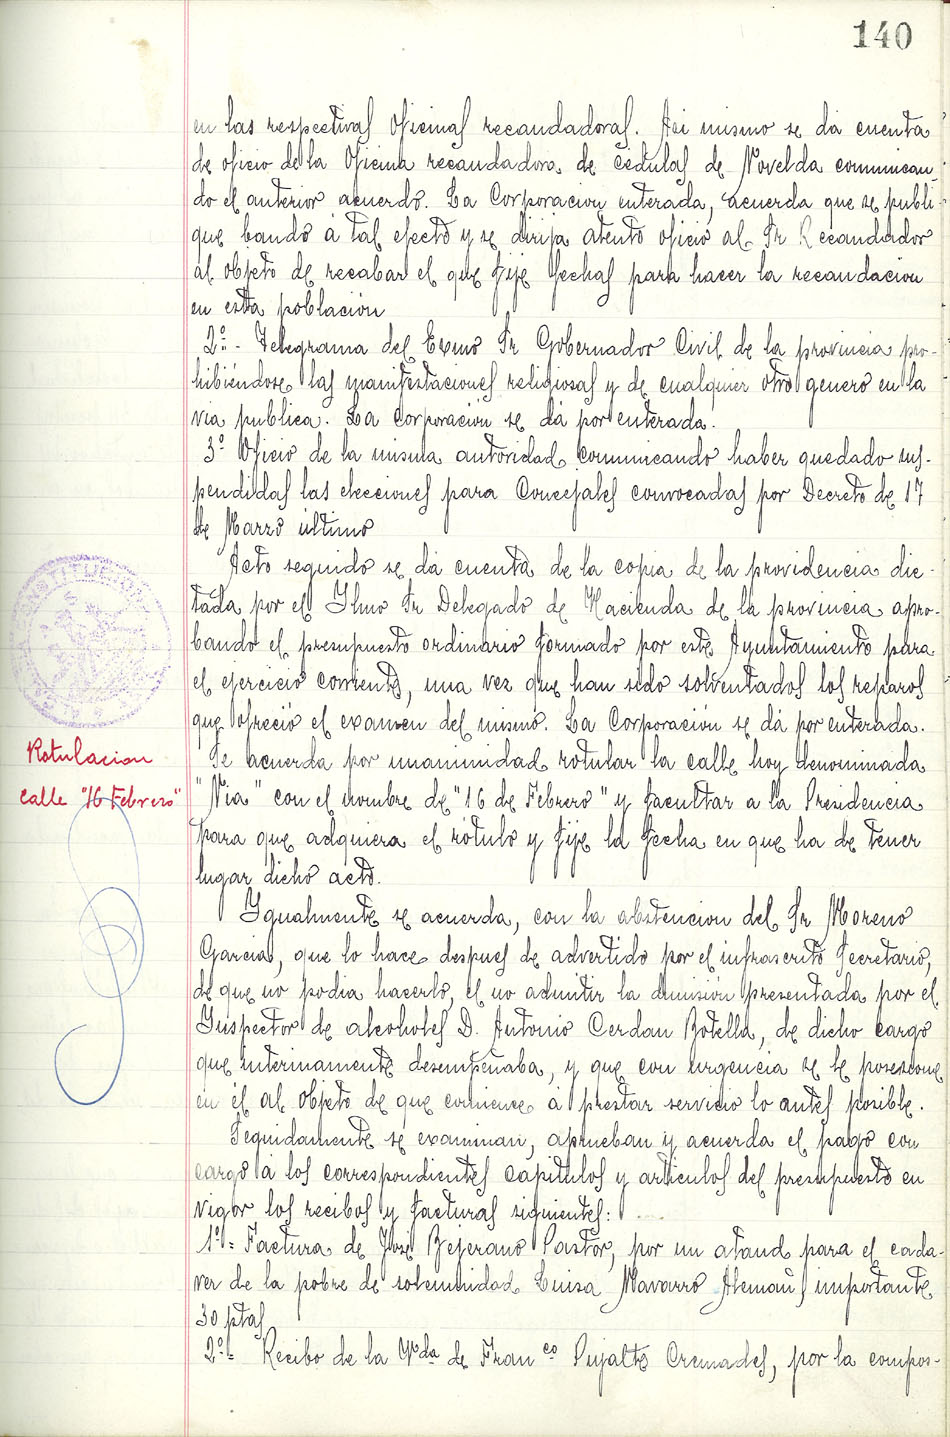 140
en las respectivas Oficinas recaudadoras. Asi mismo se dá cuenta
de oficio de la Oficina recaudadora de Cédulas de Novelda comunican-
do el anterior acuerdo. La Corporacion enterada, acuerda que se publi-
que bando á tal efecto y se dirija atento oficio al Sr Recaudador
al objeto de recabar el que fije fechas para hacer la recaudacion
en esta población
2º- Telegrama del Exmo Sr Gobernador Civil de la provincia pro-
hibiéndose las manifestaciones religiosas y de cualquier otro genero en la
via publica. La corporación se dá por enterada.
3º Oficio de la misma autoridad comunicando haber quedado sus-
pendidas las elecciones para Concejales convocadas por Decreto de 17
de Marzo último
Acto seguido se dá cuenta de la copia de la providencia dic-
tada por el Ilmo Sr Delegado de Hacienda de la provincia apro-
bando el presupuesto ordinario formado por este Ayuntamiento para
el ejercicio corriente, una vez que han sido solventados los reparos
que ofreció el examen del mismo. La Corporación se dá por enterada.
Rotulacion
calle "16 Febrero"
Se acuerda por unanimidad rotular la calle hoy denominada
"Via" con el nombre de "16 de Febrero" y facultar a la Presidencia
para que adquiera el rótulo y fije la fecha en que ha de tener
lugar dicho acto.
Igualmente se acuerda, con la abstencion del Sr Moreno
Garcia, que lo hace despues de advertido por el infrascrito Secretario,
de que no podia hacerlo, el no admitir la dimisión presentada por el
Inspector de alcoholes D. Antonio Cerdan Botella, de dicho cargo
que interinamente desempeñaba, y que con urgencia se le posesione
en él al objeto de que comience á prestar servicio lo antes posible.
Seguidamente se examinan, aprueban y acuerda el pago con
cargo á los correspondientes capitulos y articulos del presupuesto en
vigor los recibos y facturas siguientes:
1º= Factura de José Bejerano Pastor, por un ataud para el cada-
ver de la pobre de solemnidad Luisa Navarro Alemañ importante
30 ptas
2º= Recibo de la Vda de Franco Pujalte Cremades, por la compos-